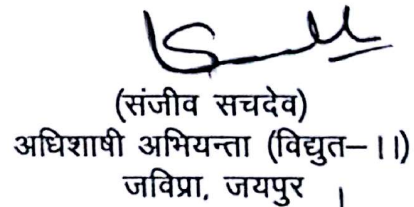 (संजीव सचदेव)
अधिशाषी अभियन्ता (विद्युत–।।)
जविप्रा, जयपुर